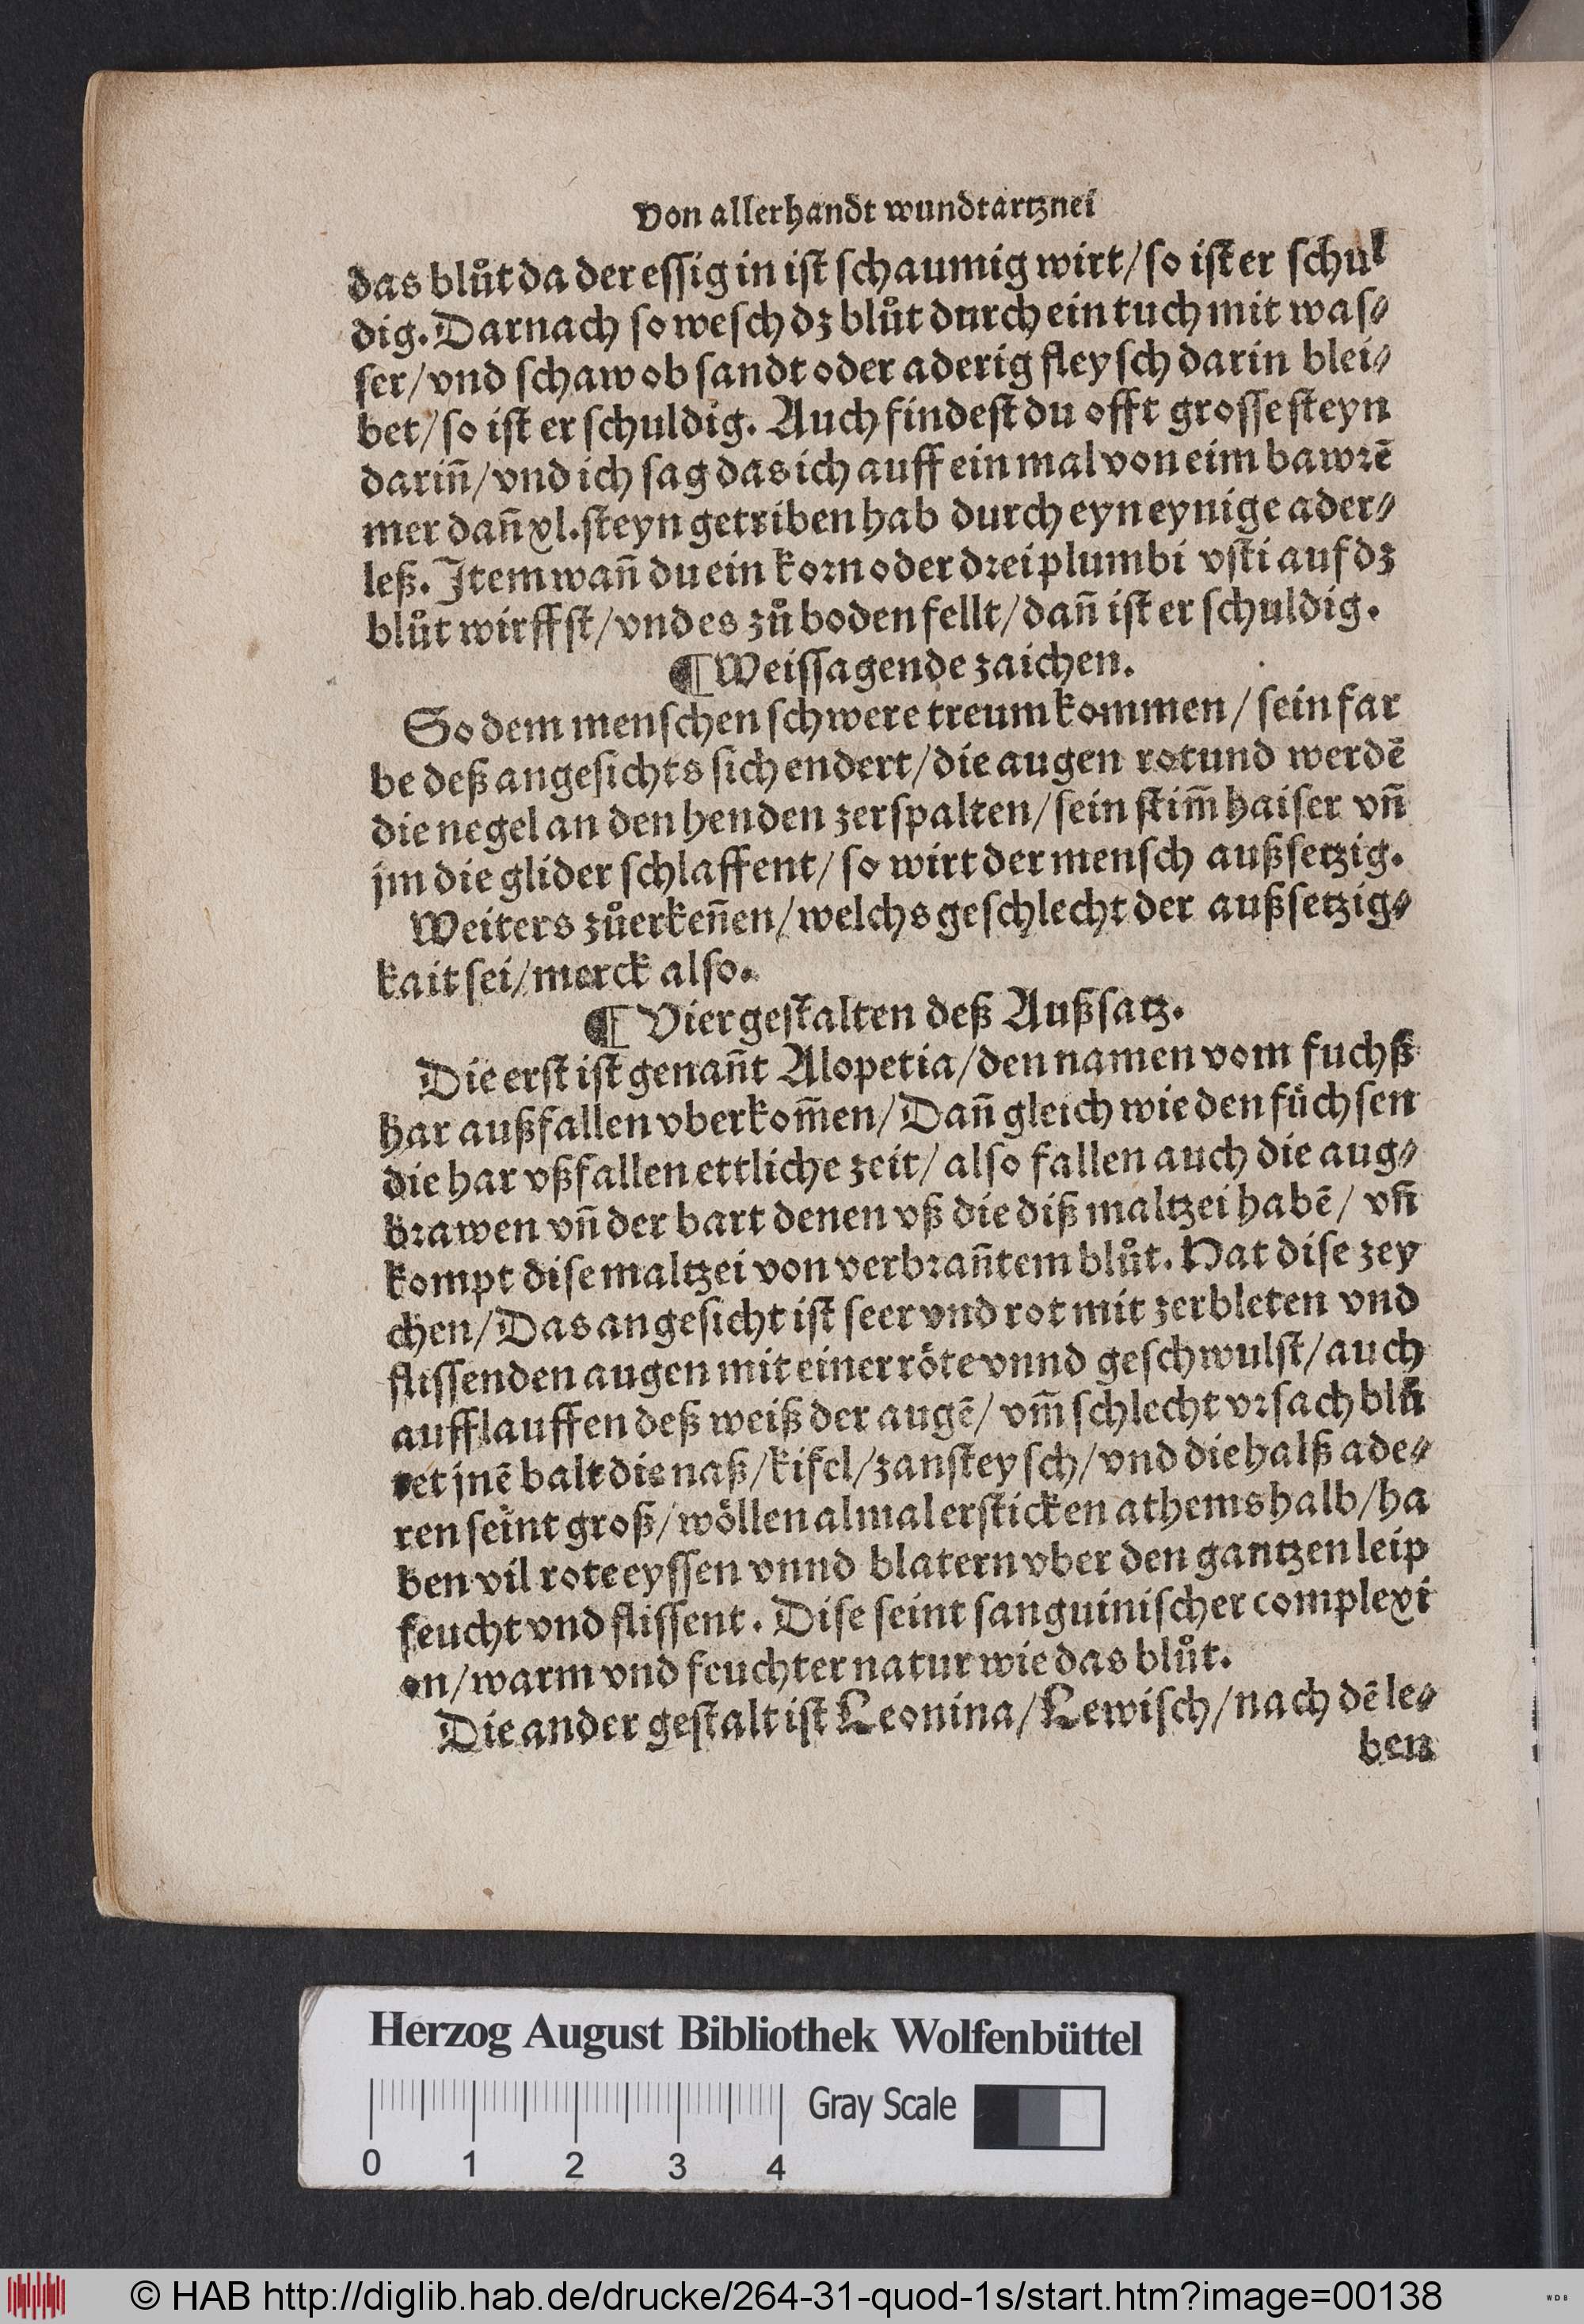 Von allerhandt wundtartznei
das blůt da der essig in ist schaumig wirt/so ist er schul
dig. Darnach so wesch dz blůt durch ein tuch mit was⸗
ser/vnd schaw ob sandt oder aderig fleysch darin blei⸗
bet/so ist er schuldig. Auch findest du offt grosse steyn
dariñ/vnd ich sag das ich auff ein mal von eim bawrẽ
mer dañ xl.steyn getriben hab durch eyn eynige ader⸗
leß. Item wañ du ein korn oder drei plumbi vsti auf dz
blůt wirffst/vnd es zů boden fellt/dañ ist er schuldig.
¶ Weissagende zaichen.
So dem menschen schwere treum kommen/sein far
be deß angesichts sich endert/die augen rotund werdẽ
die negel an den henden zerspalten/sein stim̃ haiser vñ
jm die glider schlaffent/so wirt der mensch außsetzig.
Weiters zůerkeñen/welchs geschlecht der außsetzig⸗
kait sei/merck also.
¶ Vier gestalten deß Außsatz.
Die erst ist genañt Alopetia/den namen vom fuchß
har außfallen vberkom̃en/Dañ gleich wie den füchsen
die har vßfallen ettliche zeit/also fallen auch die aug⸗
brawen vñ der bart denen vß die diß maltzei habẽ/vñ
kompt dise maltzei von verbrañtem blůt. Hat dise zey
chen/Das angesicht ist seer vnd rot mit zerbleten vnd
flissenden augen mit einer röte vnnd geschwulst/auch
aufflauffen deß weiß der augẽ/vm̃ schlecht vrsach blů
tet jnẽ balt die naß/kifel/zansteysch/vnd die halß ade⸗
ren seint groß/wöllen almal ersticken athems halb/ha
ben vil rote eyssen vnnd blatern vber den gantzen leip
feucht vnd flissent. Dise seint sanguinischer complexi
on/warm vnd feuchter natur wie das blůt.
Die ander gestalt ist Leonina/Lewisch/nach dẽ le⸗
ben
Herzog August Bibliothek Wolfenbüttel
Gray Scale
0 1 2 3 4
© HAB http://diglib.hab.de/drucke/264-31-quod-1s/start.htm?image=00138
WDB